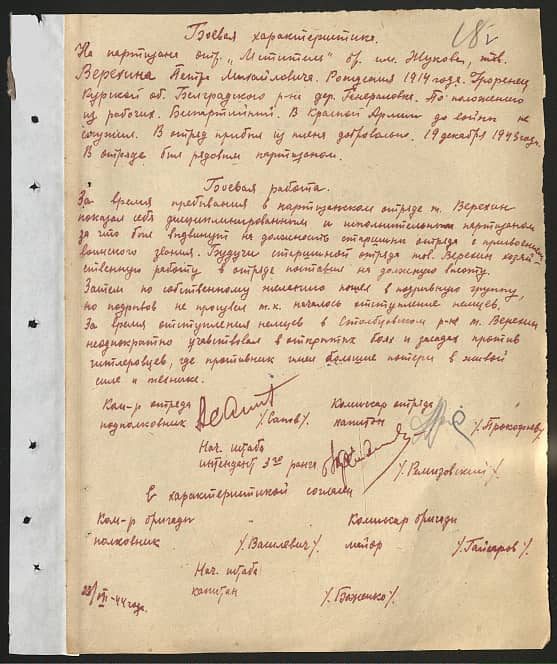 18г
Боевая характеристика.
На партизана отр. „Мститель" бр. им. Жукова, тов.
Верехина Петра Михайловича. Рождения 1914 года. Уроженец
Курской об. Белградского р-на дер. Генераловка. По положению
из рабочих. Беспартийный. В Красной Армии до войны не
служил. В отряд прибыл из плена добровольно. 19 декабря 1943 года.
В отряде был рядовым партизаном.
Боевая работа.
За время пребывания в партизанском отряде т. Верехин
показал себя дисциплинированным и исполнительным партизаном
за что был выдвинут на должность старшины отряда с присвоением
воинского звания. Будучи старшиной отряда тов. Верехин хозяй-
ственную работу в отряде поставил на должную высоту.
Затем по собственному желанию пошел в подрывную группу,
но подрывов не произвел т.к. началось отступление немцев.
За время отступления немцев в Столбцовском р-не т. Верехин
неоднократно участвовал в открытых боях и засадах против
гитлеровцев, где противник имел большие потери в живой
силе и технике.
Ком-р отряда Комиссар отряда
подполковник /Сатов/. капитан /Прокофьев/
Нач. штаба
интендент 3го ранга /Ремизовский/
С характеристикой согласны
Ком-р бригады Комиссар бригады
полковник /Василевич/. майор /Гайсаров/.
Нач. штаба
капитан /Баженко/.
-44 года.